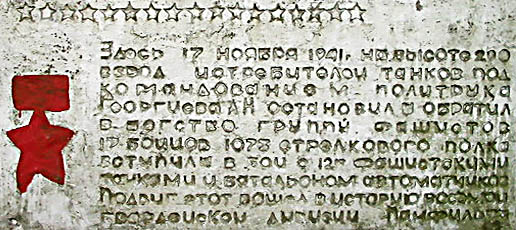 Здесь 17 ноября 1941г. на высоте 290
взвод истребителей танков под
командование м. политрука
Георгиева А Н остановил и обратил
в бегство группу фашистов
17 бойцов 1073 стрелкового полка
вступили в бой с 12ю фашистскими
танками и батальоном автоматчиков
Подвиг этот вошел в историю восьмой
гвардейской дивизии Панфилова